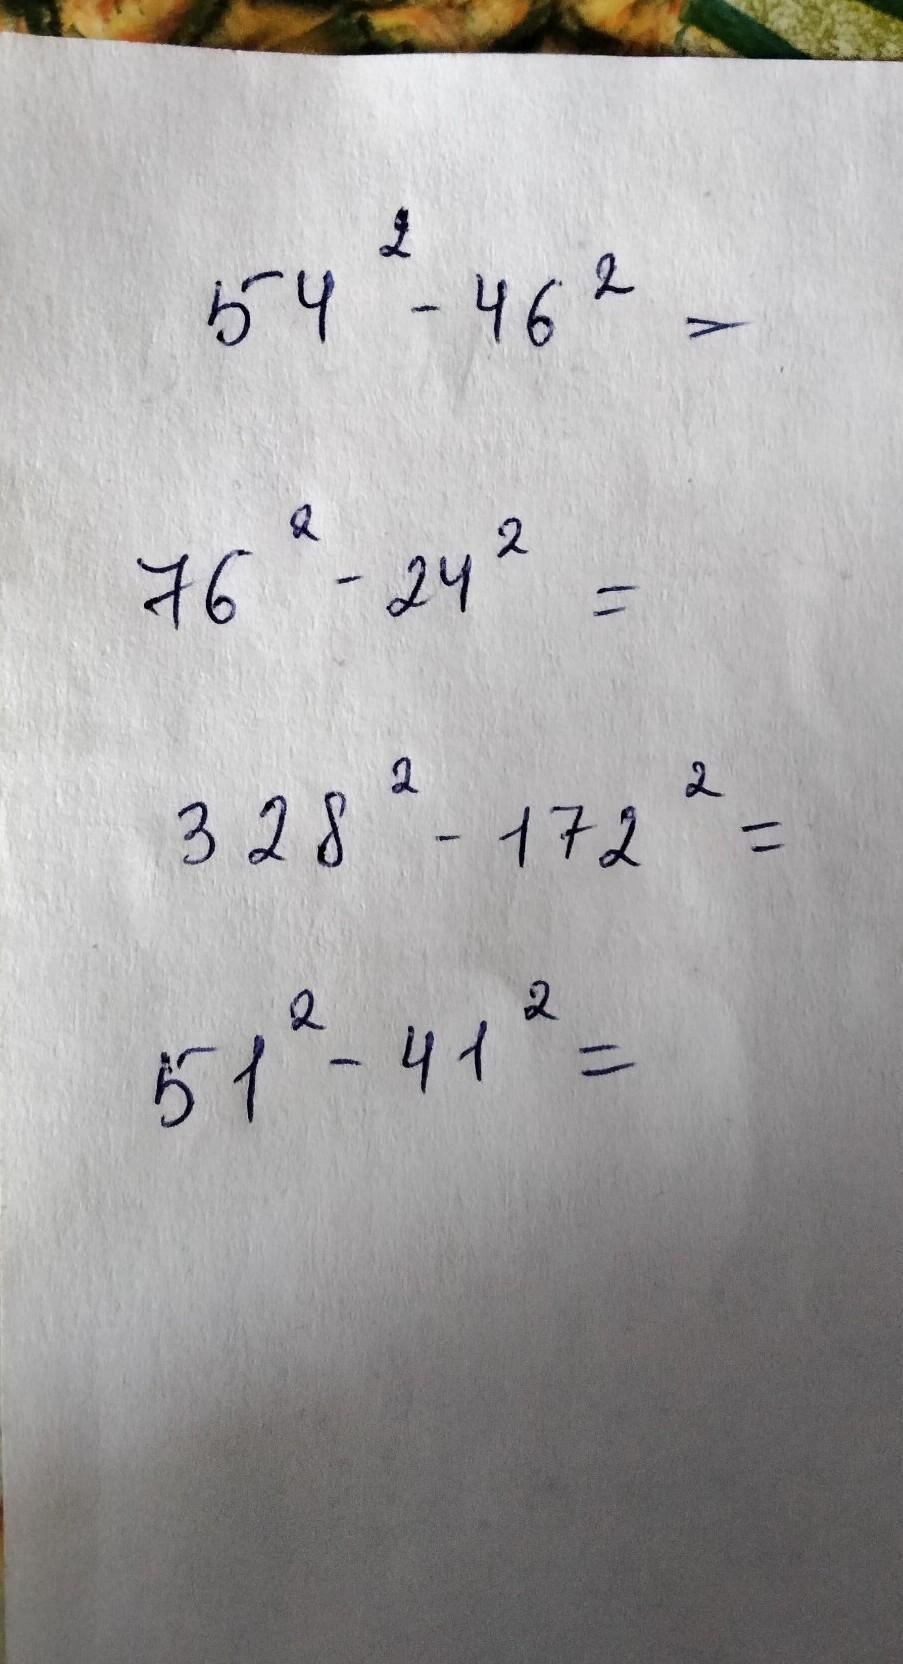 54² - 46² =
76² - 24² =
328² - 172² =
51² - 41² =